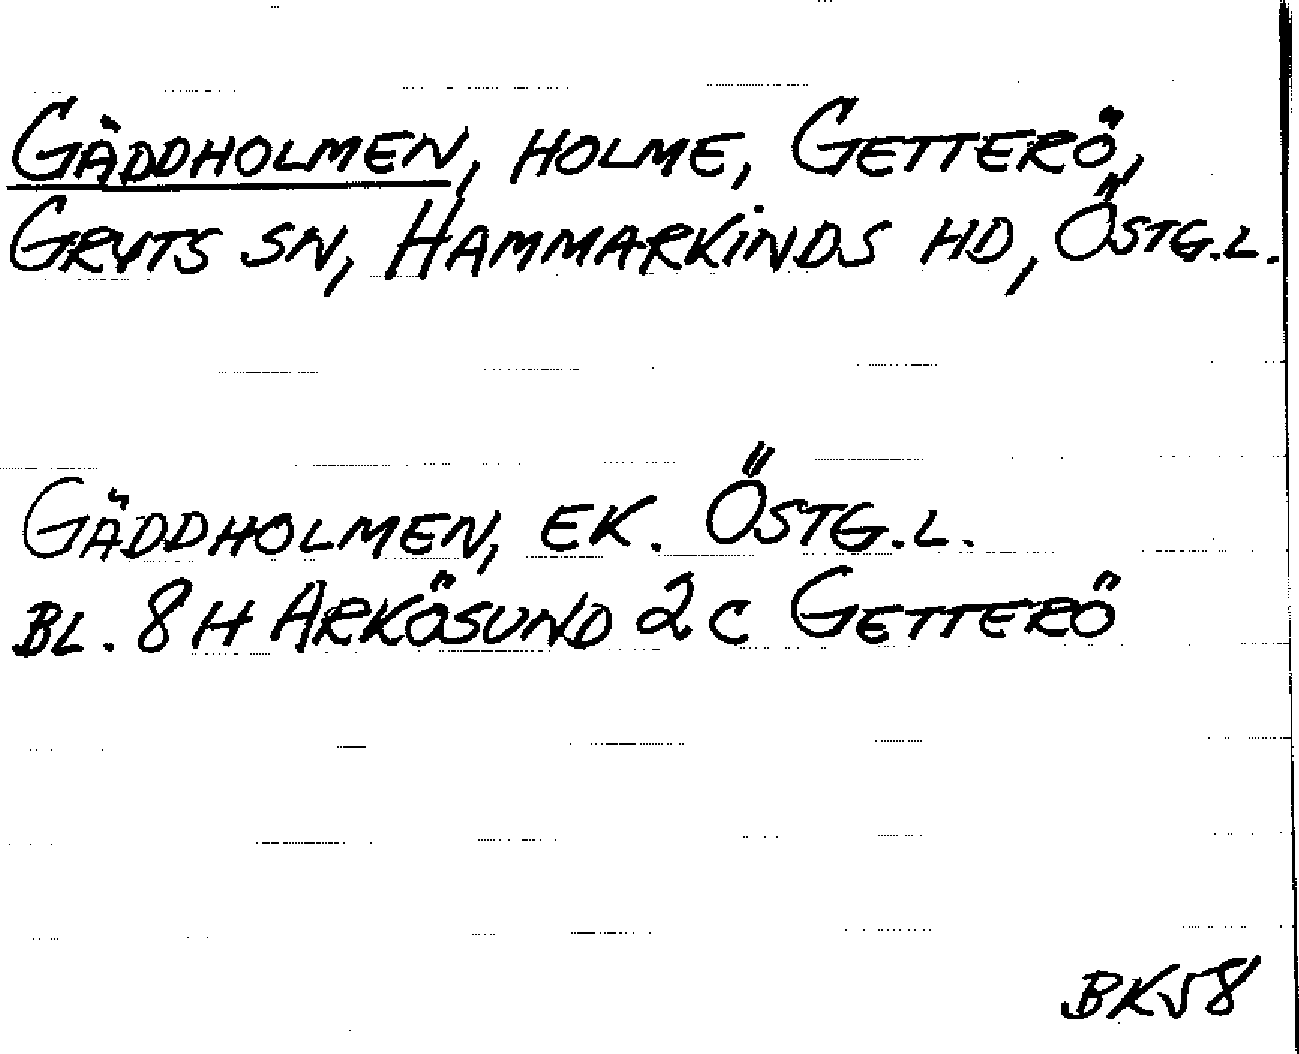 GÄDDHOLMEN, HOLME, GETTERÖ,
GRYTS SN, HAMMARKINDS HD, ÖSTG.L.
GÄDDHOLMEN, EK. ÖSTG.L.
BL. 8 H ARKÖSUND 2 C GETTERÖ
BKV8